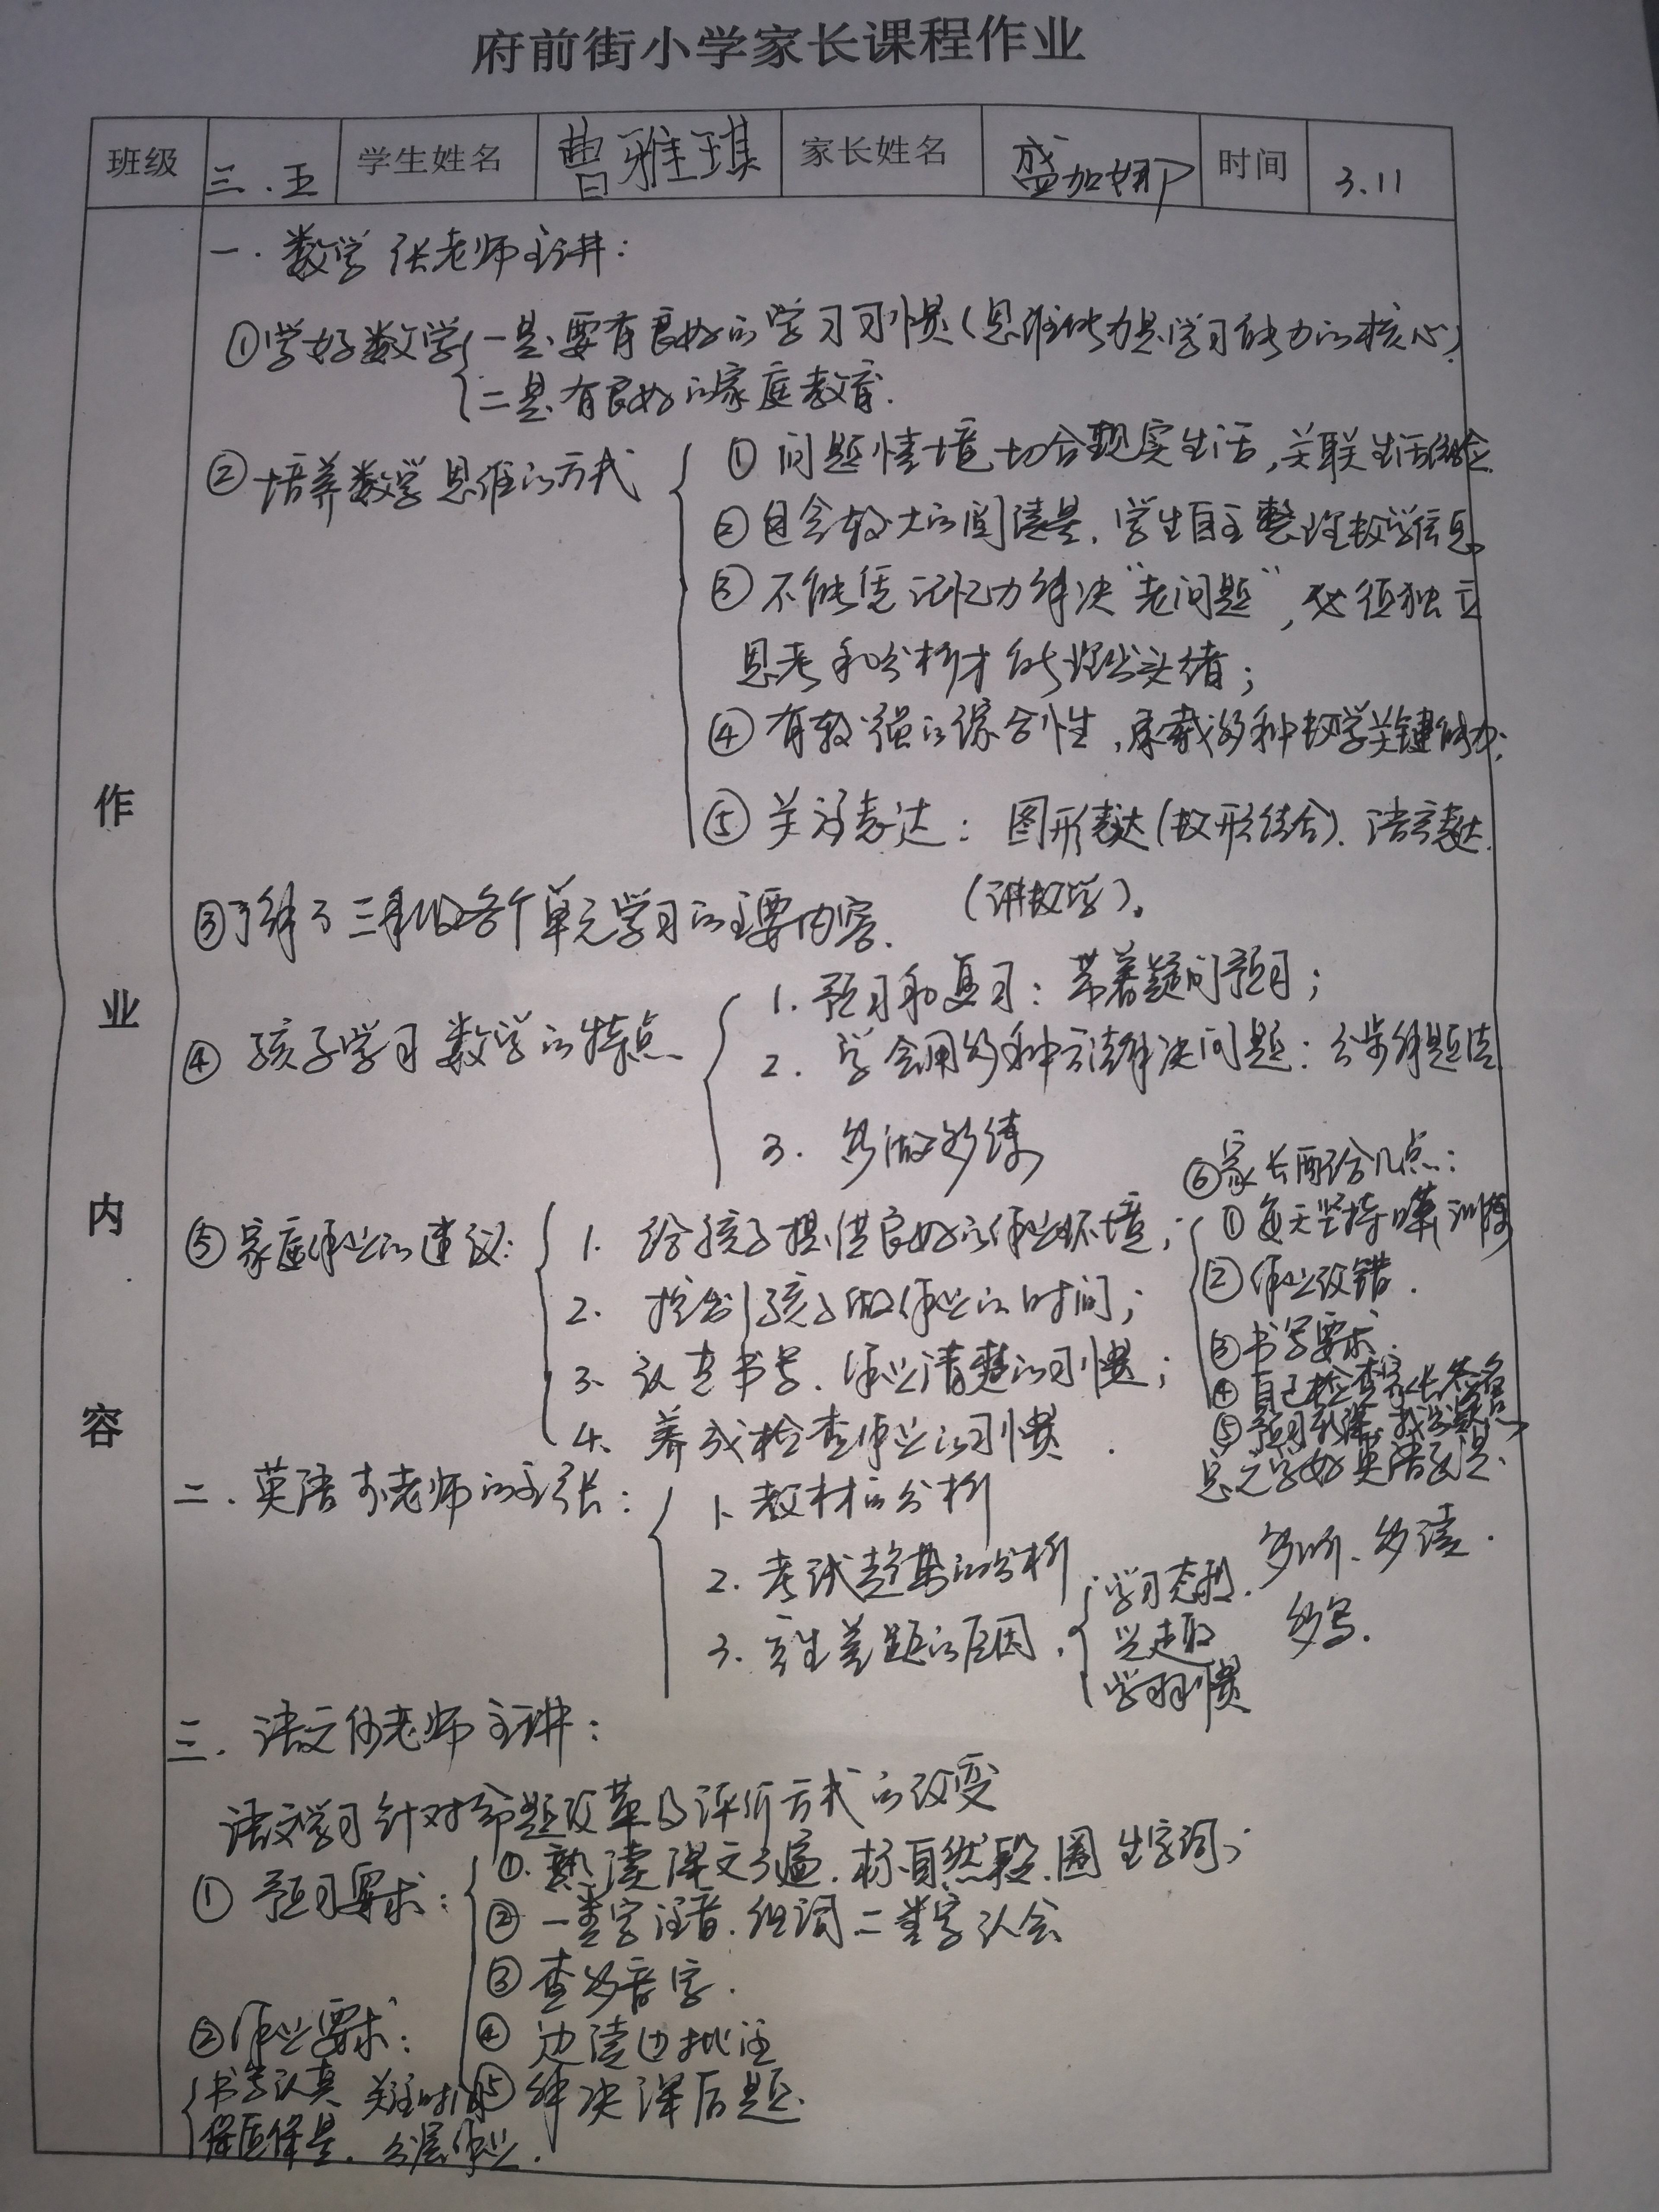 府前街小学家长课程作业
班级 三.五 学生姓名 曹雅琪 家长姓名 盛加娜 时间 3.11
作业内容
一.数学张老师主讲:
①学好数学 一是要有良好的学习习惯(思维能力是学习能力的核心)
二是有良好的家庭教育.
②培养数学思维的方式
①问题情境切合现实生活,关联生活经验.
②包含较大的阅读量,学生自主整理数学信息
③不能凭记忆力解决“老问题”,必须独立
思考和分析才能理出头绪;
④有较强的综合性,承载多种数学关键能力;
⑤关注表达:图形表达(数形结合).语言表达.
(讲数学)。
③了解了三年级各个单元学习的主要内容.
④孩子学习数学的特点
1.预习和复习:带着疑问预习;
2.学会用多种方法解决问题:分步解题法
3.多做多练
⑤家庭作业的建议:
1.给孩子提供良好的作业环境;
2.控制孩子做作业的时间;
3.认真书写.作业清楚的习惯;
4.养成检查作业的习惯.
⑥家长配合几点:
①每天坚持口算训练
②作业改错.
③书写要求.
④自己检查家长签名
⑤预习新课,找出疑点
二.英语 老师的主张:
1.教材的分析
2.考试趋势的分析
3.产生差距的原因.
学习态度.
兴趣
学习习惯
总之学好英语就是.
多听、多读.
多写.
三.语文 老师主讲:
语文学习针对命题改革及评价方式的改变
①预习要求:
①.熟读课文3遍.标自然段.圈生字词;
②一类字注音.组词二类字认会
③查多音字.
④边读边批注
⑤解决课后题.
②作业要求:
书写认真 关注时间
保质保量. 分层作业.